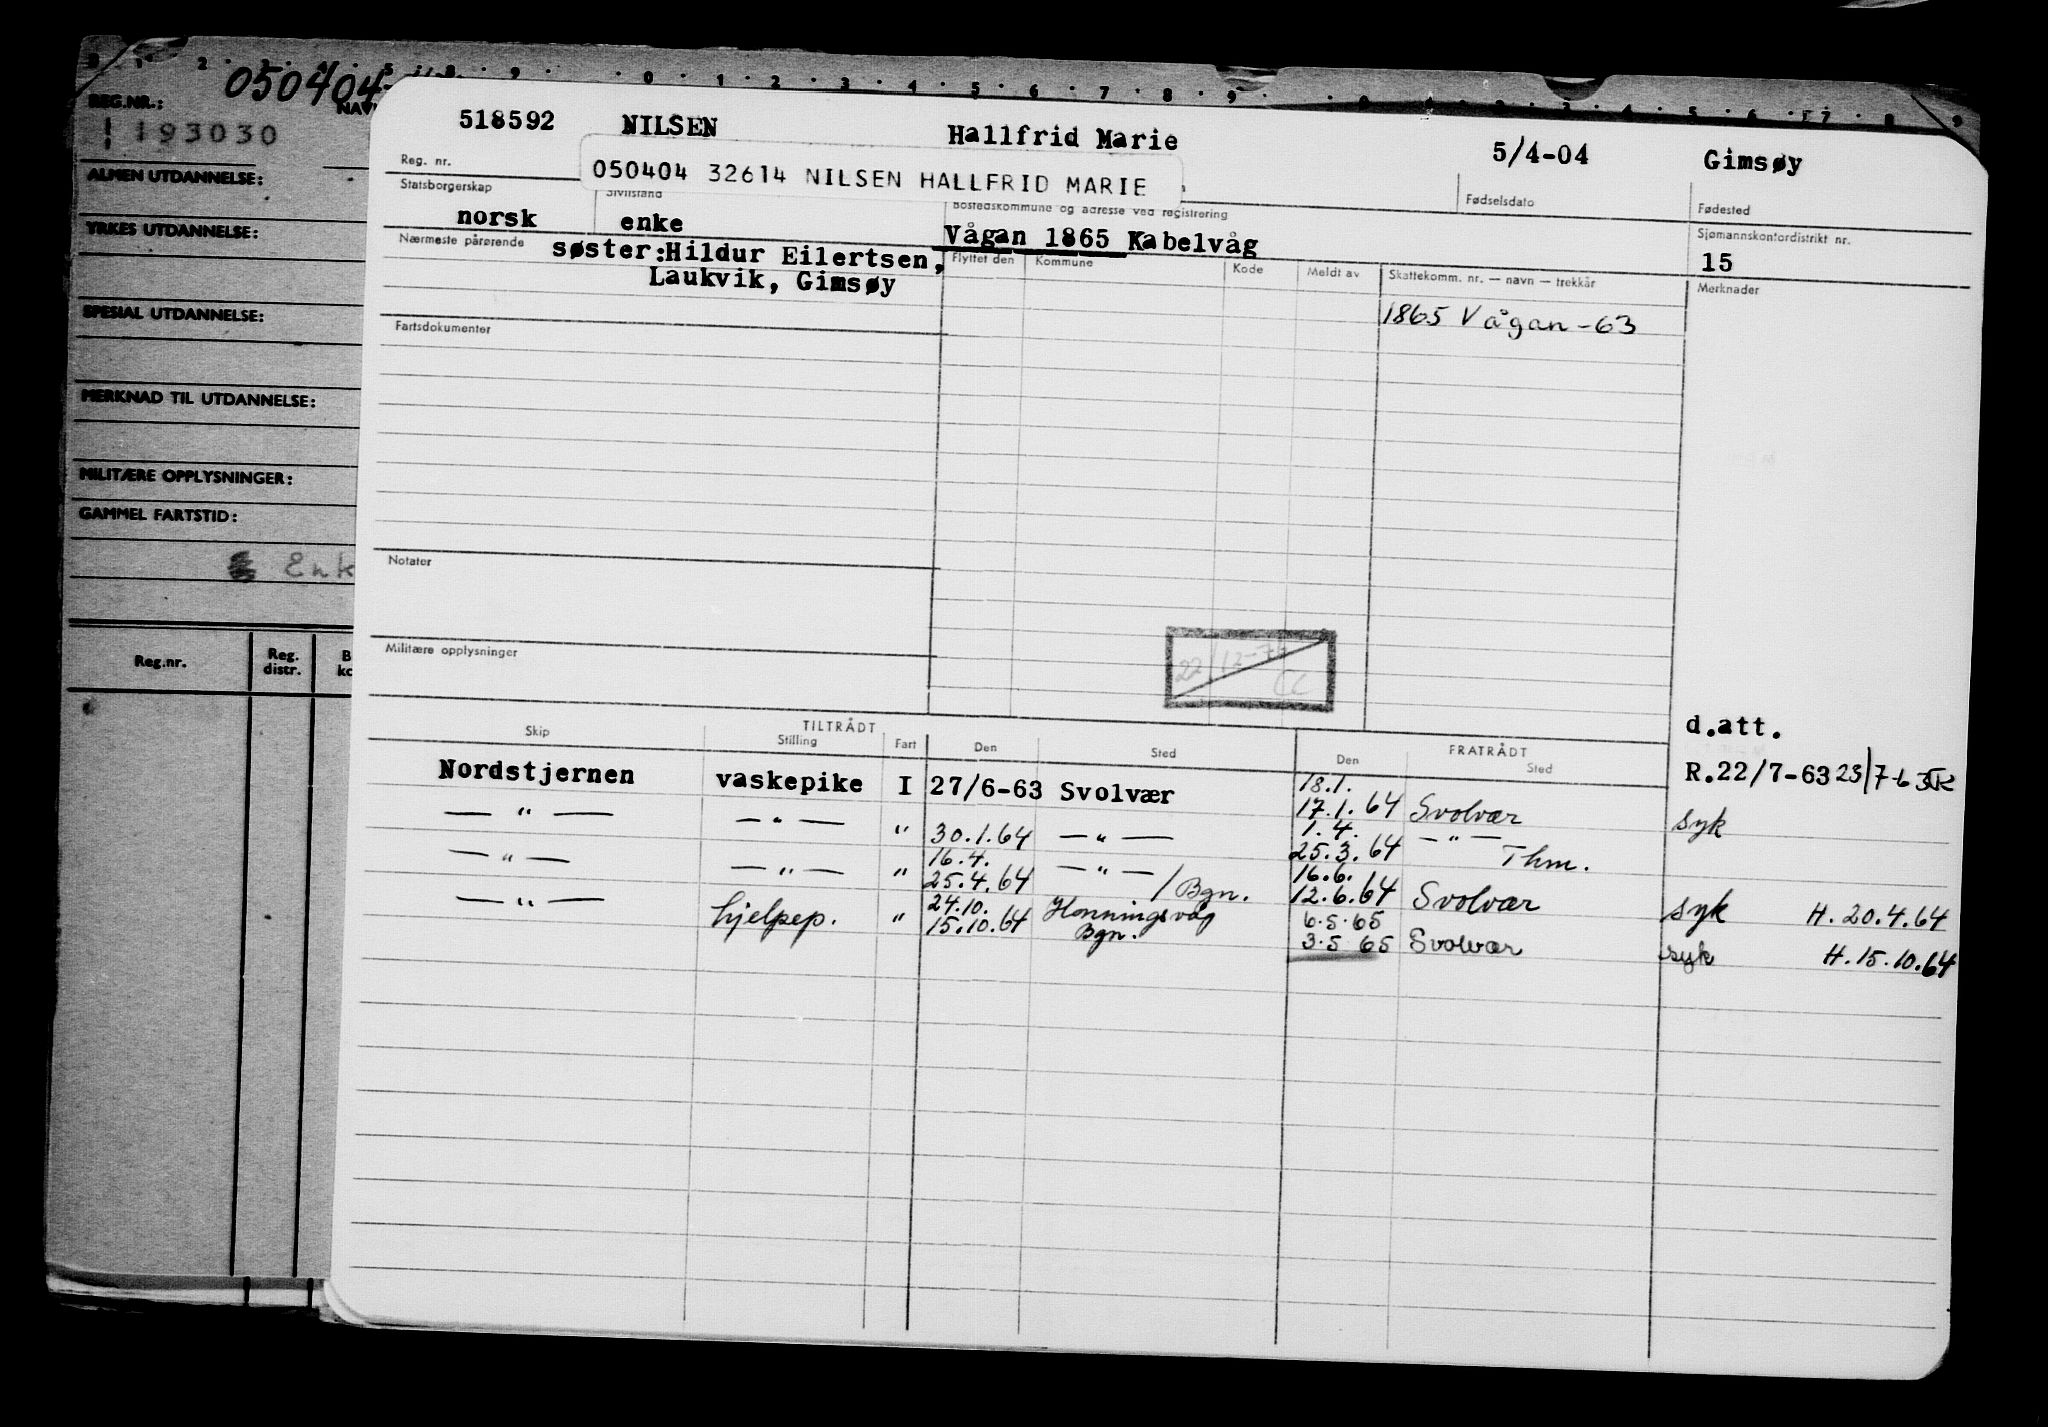 050404
REG.NR.:
193030
ALMEN UTDANNELSE:
YRKES UTDANNELSE:
SPESIAL UTDANNELSE:
MERKNAD TIL UTDANNELSE:
MILITÆRE OPPLYSNINGER:
GAMMEL FARTSTID:
Enk
Reg.nr. Reg. distr.
518592 NILSEN Hallfrid Marie 5/4-04 Gimsøy
050404 32614 NILSEN HALLFRID MARIE
Reg. nr. Fødselsdato Fødested
Statsborgerskap Sivilstand Bostedskommune og adresse ved registrering Sjømannskontordistrikt nr.
norsk enke Vågan 1865 Kabelvåg 15
Nærmeste pårørende søster:Hildur Eilertsen,
Laukvik, Gimsøy
Flyttet den Kommune Kode Meldt av Skattekomm. nr. — navn — trekkår Merknader
1865 Vågan-63
Fartsdokumenter
Notater
Militære opplysninger
22/12-7
CC
d.att.
TILTRÅDT FRATRÅDT
Skip Stilling Fart Den Sted Den Sted
R.22/7-63 23/7-63
Nordstjernen vaskepike I 27/6-63 Svolvær 18.1. 17.1.64 Svolvær syk
— " — — " — " 30.1.64 — " — 1.4. 25.3.64 — " — Thm.
— " — — " — " 16.4. 25.4.64 — " — / Bgn. 16.6. 12.6.64 Svolvær syk H. 20.4.64
— " — hjelpep. " 24.10. 15.10.64 Honningsvåg Bgn. 6.5.65 3.5 65 Svolvær syk H.15.10.64